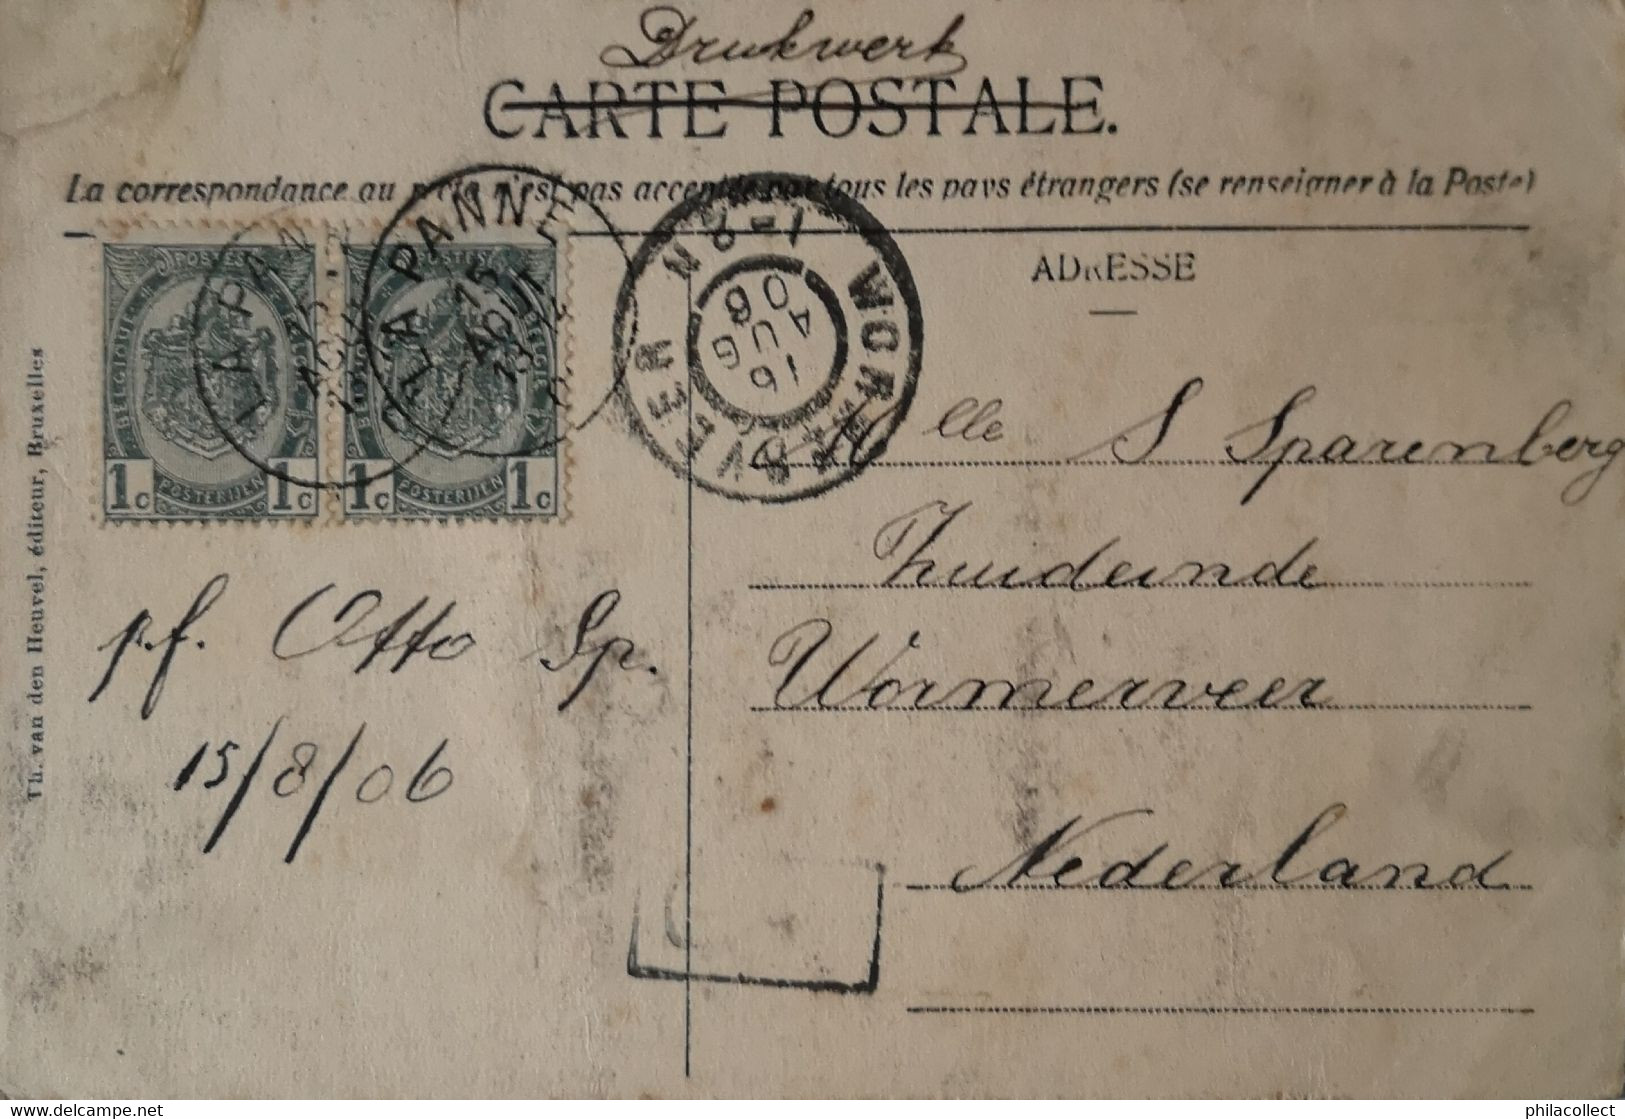 Drukwerk
CARTE POSTALE.
La correspondance au recto n'est pas acceptée par tous les pays étrangers (se renseigner à la Poste)
ADRESSE
POSTES POSTES
BELGIQUE BELGIQUE BELGIË
1c 1c 1c 1c
POSTERIJEN POSTERIJEN
LA PANNE
15
AOUT
LA PANNE
15
AOUT
WORMERVEER
16 AUG 06
Melle S Sparenberg
Zuideinde
Wormerveer
Nederland
p.f. Otto Sp.
15/8/06
Th. van den Heuvel, éditeur, Bruxelles
https://www.delcampe.net
philacollect